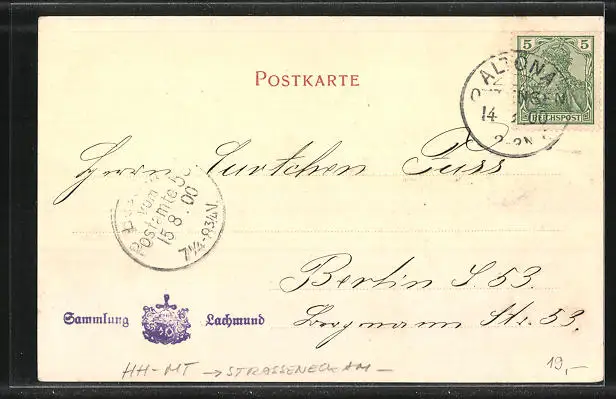 POSTKARTE
5 5
REICHSPOST
ALTONA
14
2-3N
Herrn Curtchen Fuss
vom
Postamte 53
15 8.00
7¼-8¾V.
Berlin S. 53.
Bergmann Str. 53.
Sammlung Lachmund
HH-MT → STRASSENECKAM –
19,-